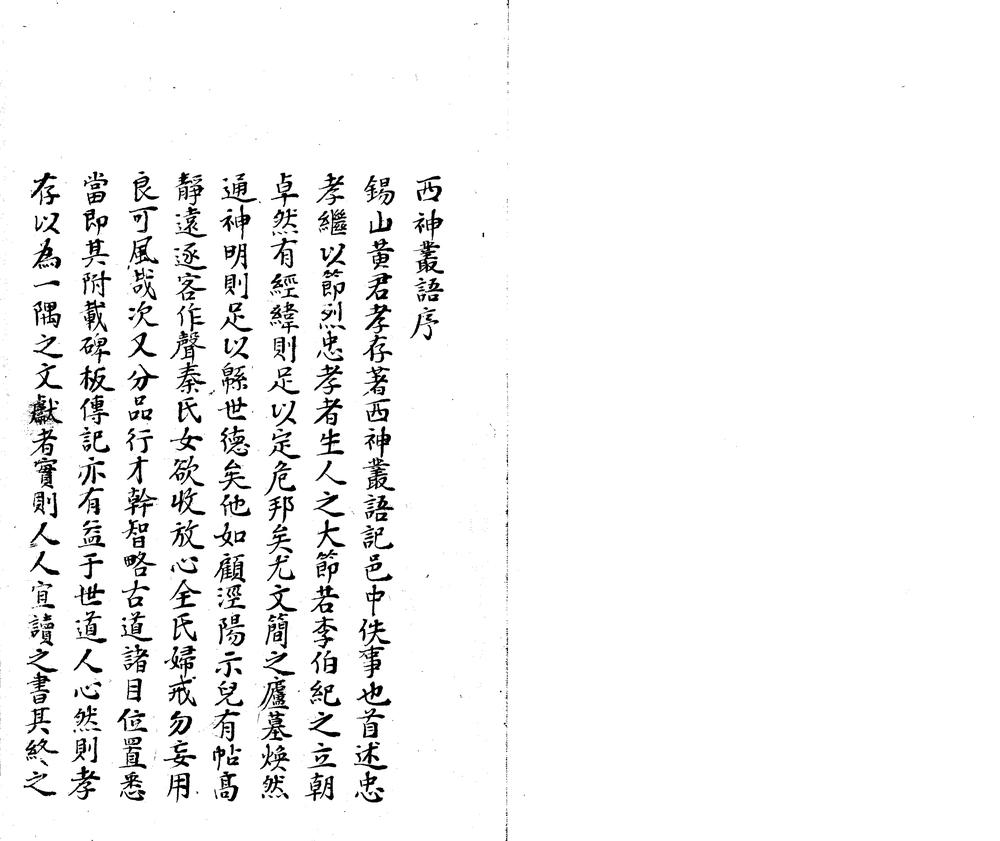 西神叢語序
錫山黃君孝存著西神叢語記邑中佚事也首述忠
孝繼以節烈忠孝者生人之大節若李伯紀之立朝
卓然有經緯則足以定危邦矣尤文簡之廬墓煥然
通神明則足以縣世德矣他如顧涇陽示兒有帖高
靜遠逐客作聲秦氏女欲收放心全氏婦戒勿妄用
良可風哉次又分品行才幹智略古道諸目位置悉
當即其附載碑板傳記亦有益于世道人心然則孝
存以為一隅之文獻者實則人人宜讀之書其終之